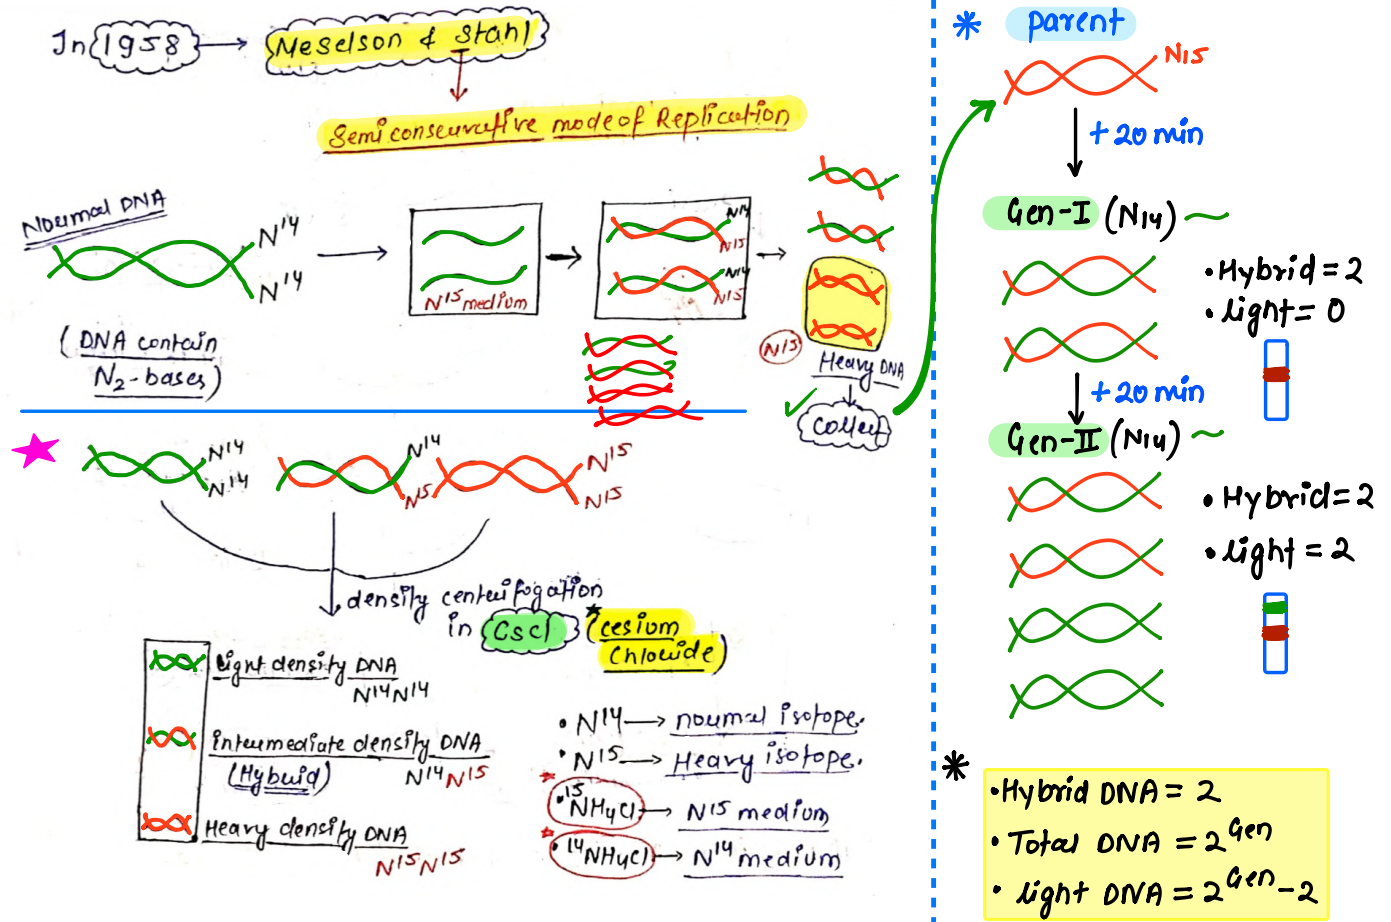 In 1958 → Meselson & Stahl
Semiconservative mode of Replication
Normal DNA
N14
N14
(DNA contain
N2-bases)
N15 medium
N14
N15
N14
N15
N15
Heavy DNA
collect
N14
N14
N14
N15
N15
N15
density centrifogation
in CsCl (cesium
Chloride)
light density DNA
N14N14
intermediate density DNA
(Hybrid) N14N15
Heavy density DNA
N15N15
• N14 → normal isotope.
• N15 → Heavy isotope.
* • 15NH4Cl → N15 medium
* • 14NH4Cl → N14 medium
* parent
N15
+20 min
Gen-I (N14) ~
• Hybrid = 2
• light = 0
+20 min
Gen-II (N14) ~
• Hybrid = 2
• light = 2
*
• Hybrid DNA = 2
• Total DNA = 2^Gen
• light DNA = 2^Gen - 2